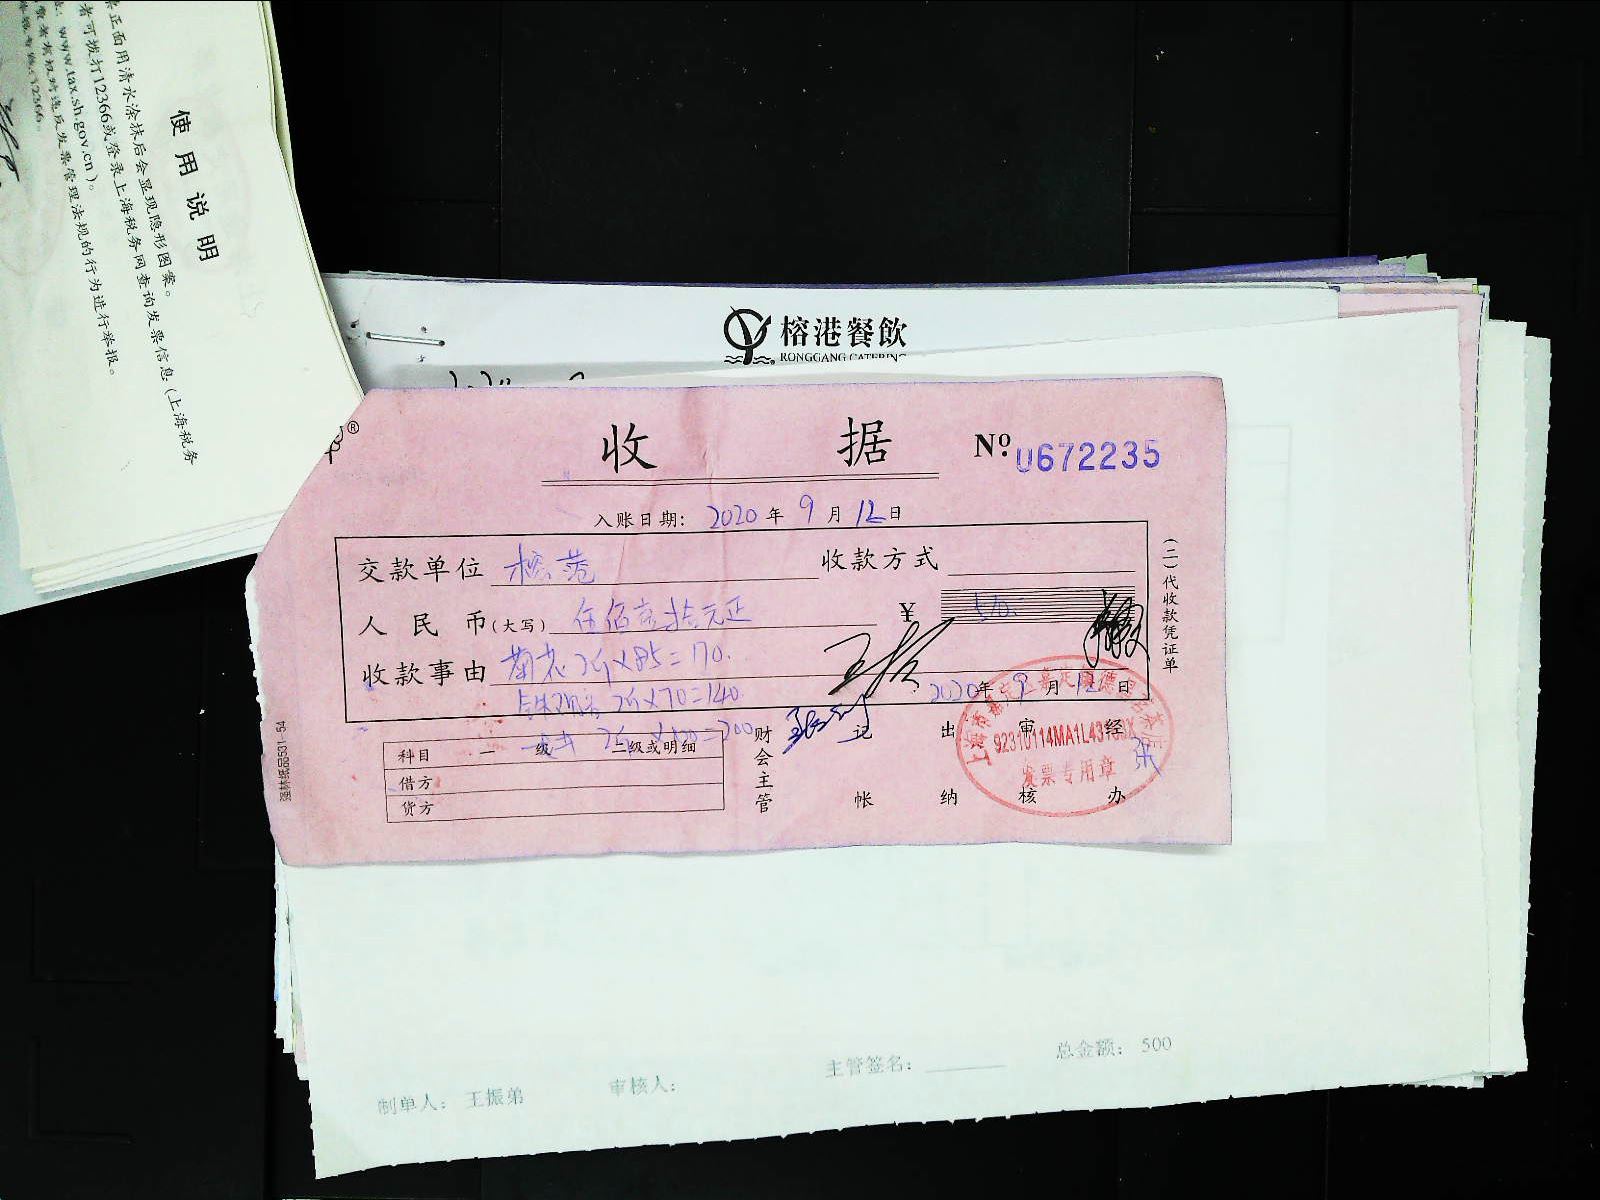 使用说明
票正面用清水涂抹后会显现隐形图案。
者可拨打12366或登录上海税务网查询发票信息(上海税务
www.tax.sh.gov.cn)。
费者有权对违反发票管理法规的行为进行举报。
12366。
榕港餐飲
RONGGANG CATERING
收据
Nº 0672235
入账日期: 2020年9月12日
交款单位 榕港 收款方式
人民币(大写) 伍佰壹拾元正 ¥ 510.
收款事由 菊花 2斤×85=170.
铁观音 2斤×70=140.
2斤×100=200
2020年9月12日
(二)代收款凭证单
科目 一级 二级或明细
借方
贷方
财会主管 记帐 出纳 审核 经办
发票专用章
制单人: 王振弟 审核人: 主管签名: 总金额: 500